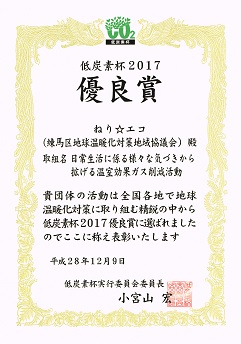 CO2
低炭素杯
低炭素杯2017
優良賞
ねり☆エコ
（練馬区地球温暖化対策地域協議会） 殿
取組名 日常生活に係る様々な気づきから
拡げる温室効果ガス削減活動
貴団体の活動は全国各地で地球
温暖化対策に取り組む精鋭の中から
低炭素杯2017優良賞に選ばれました
のでここに称え表彰いたします
平成28年12月9日
低炭素杯実行委員会委員長
小宮山 宏